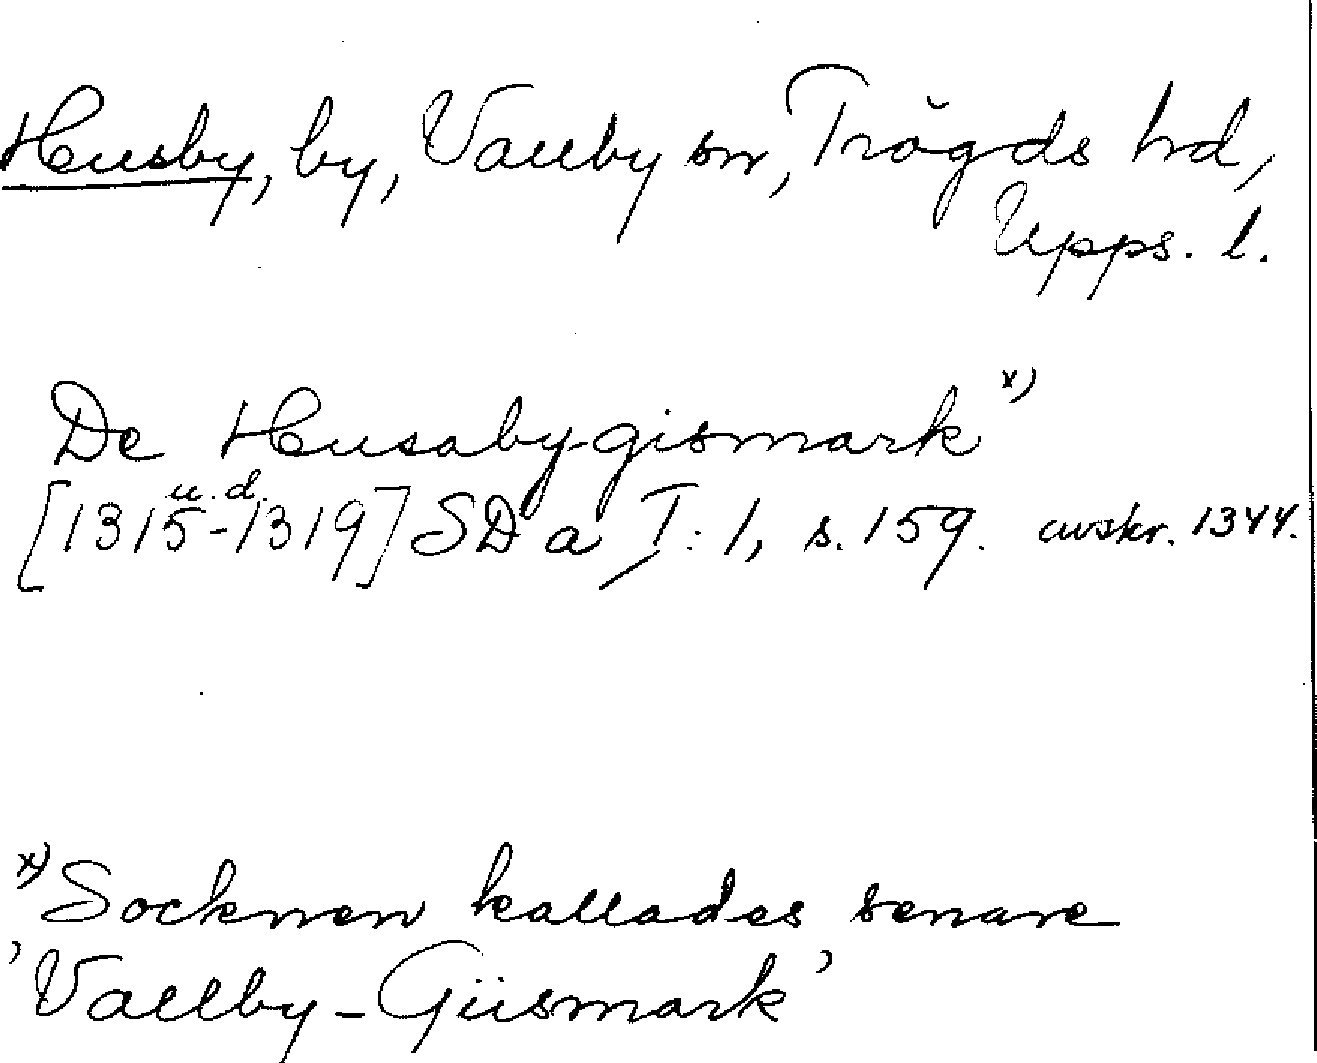 Husby, by, Vallby sn, Trögds hd,
Upps. l.
De Husabygismark x)
u. d.
[1315-1319] SD a I: 1, s. 159. avskr. 1344.
x) Socknen kallades senare
'Vallby-Giismark'